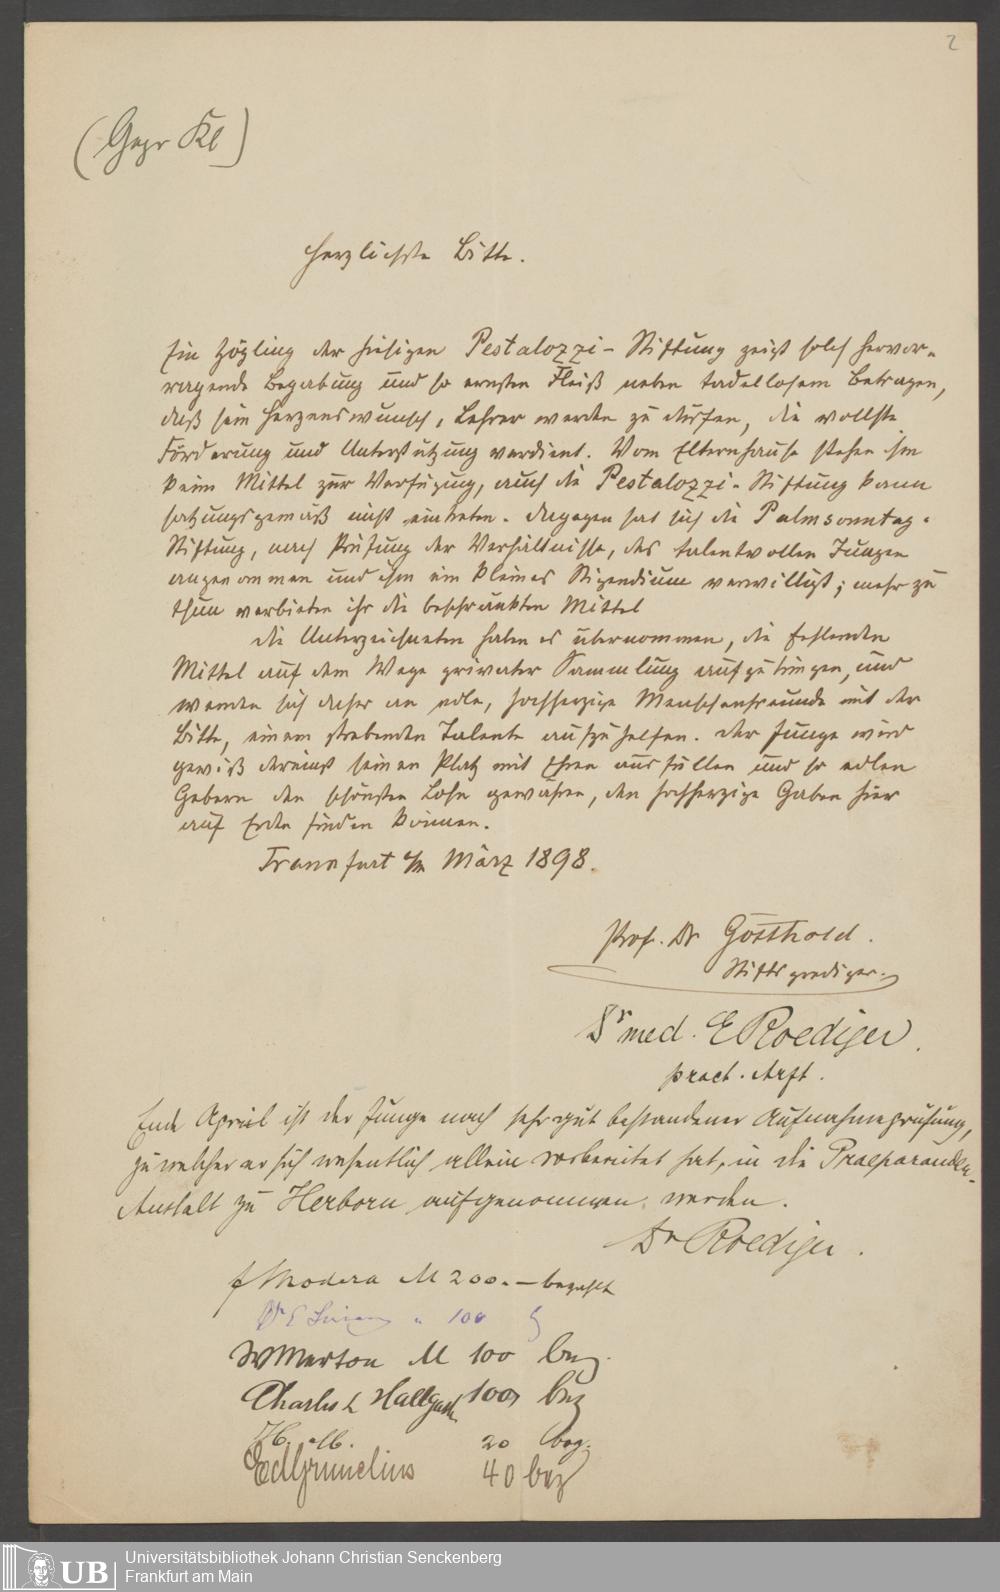 2
(Gepr Kl)
Herzlichste Bitte.
Ein Zögling der hiesigen Pestalozzi-Stiftung zeigt solch hervor-
ragende Begabung und so ernsten Fleiß neben tadellosem Betragen,
daß sein Herzenswunsch, Lehrer werden zu dürfen, die vollste
Förderung und Unterstützung verdient. Vom Elternhause stehen ihm
keine Mittel zur Verfügung, auch die Pestalozzi-Stiftung kann
satzungsgemäß nicht eintreten. Dagegen hat sich die Palmsonntag-
Stiftung, nach Prüfung der Verhältnisse, des talentvollen Jungen
angenommen und ihm ein kleines Stipendium verwilligt; mehr zu
thun verbieten ihr die beschränkten Mittel
Die Unterzeichneten haben es übernommen, die fehlenden
Mittel auf dem Wege privater Sammlung aufzubringen, und
wenden sich daher an edle, hochherzige Menschenfreunde mit der
Bitte, einem strebenden Talente aufzuhelfen. Der Junge wird
gewiß dereinst seinen Platz mit Ehren ausfüllen und so edlen
Gebern den schönsten Lohn gewähren, den hochherzige Gaben hier
auf Erden finden können.
Frankfurt a/M März 1898.
Prof. Dr Gotthold.
Stiftsprediger.
Dr med. E Roediger.
pract. Arzt.
Ende April ist der Junge nach sehr gut bestandener Aufnahmeprüfung,
zu welcher er sich wesentlich allein vorbereitet hat, in die Praeparanden-
Anstalt zu Herborn aufgenommen worden.
Dr Roediger.
M 200.— bezahlt
" 100
W Merton M 100 bez.
Charles L Hallgarten 100 bez
20 bez.
Ed Grunelius 40 bez
UB
Universitätsbibliothek Johann Christian Senckenberg
Frankfurt am Main